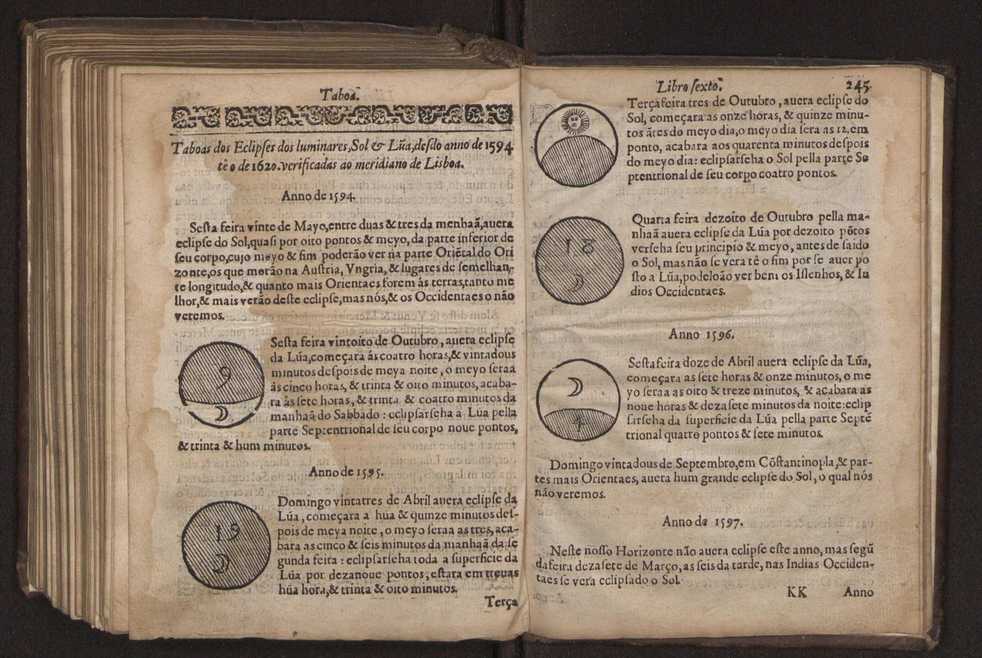 Taboa.
Taboas dos Eclipses dos luminares, Sol & Lũa, desdo anno de 1594
tè o de 1620. verificadas ao meridiano de Lisboa.
Anno de 1594.
Sesta feira vinte de Mayo, entre duas & tres da menhaã, auera
eclipse do Sol, quasi por oito pontos & meyo, da parte inferior de
seu corpo, cujo meyo & fim poderão ver na parte Oriẽtal do Ori
zonte, os que morão na Austria, Vngria, & lugares de semelhan-
te longitudo, & quanto mais Orientaes forem às terras, tanto me
lhor, & mais verão deste eclipse, mas nós, & os Occidentaes o não
veremos.
9
Sesta feira vintoito de Outubro, auera eclipse
da Lúa, começara às coatro horas, & vintadous
minutos despois de meya noite, o meyo seraa
às cinco horas, & trinta & oito minutos, acaba-
ra às sete horas, & trinta & coatro minutos da
manhaã do Sabbado: eclipsarseha à Lúa pella
parte Septentrional de seu corpo noue pontos,
& trinta & hum minutos.
Anno de 1595.
19
Domingo vintatres de Abril auera eclipse da
Lúa, começara a húa & quinze minutos des-
pois de meya noite, o meyo seraa as tres, aca-
bara as cinco & seis minutos da manhaã da se
gunda feira: eclipsarseha toda a superficie da
Lúa por dezanoue pontos, estara em treuas
húa hora, & trinta & oito minutos.
Terça
Libro sexto.
245
Terça feira tres de Outubro, auera eclipse do
Sol, começara as onze horas, & quinze minu-
tos ãtes do meyo dia, o meyo dia sera as 12. em
ponto, acabara aos quarenta minutos despois
do meyo dia: eclipsarseha o Sol pella parte Se
ptentrional de seu corpo coatro pontos.
18
Quarta feira dezoito de Outubro pella ma-
nhaã auera eclipse da Lúa por dezoito põtos
verseha seu principio & meyo, antes de saido
o Sol, mas não se vera tè o fim por se auer po
sto a Lúa, podeloão ver beni os Islenhos, & Iu
dios Occidentaes.
Anno 1596.
4
Sesta feira doze de Abril auera eclipse da Lũa,
começara as sete horas & onze minutos, o me
yo seraa as oito & treze minutos, & acabara as
noue horas & dezasete minutos da noite: eclip
sarseha da superficie da Lúa pella parte Septẽ
trional quatro pontos & sete minutos.
Domingo vintadous de Septembro, em Cõstantinopla, & par-
tes mais Orientaes, auera hum grande eclipse do Sol, o qual nós
não veremos.
Anno de 1597.
Neste nosso Horizonte não auera eclipse este anno, mas segũ
da feira dezasete de Março, as seis da tarde, nas Indias Occiden-
taes se vera eclipsado o Sol.
KK Anno